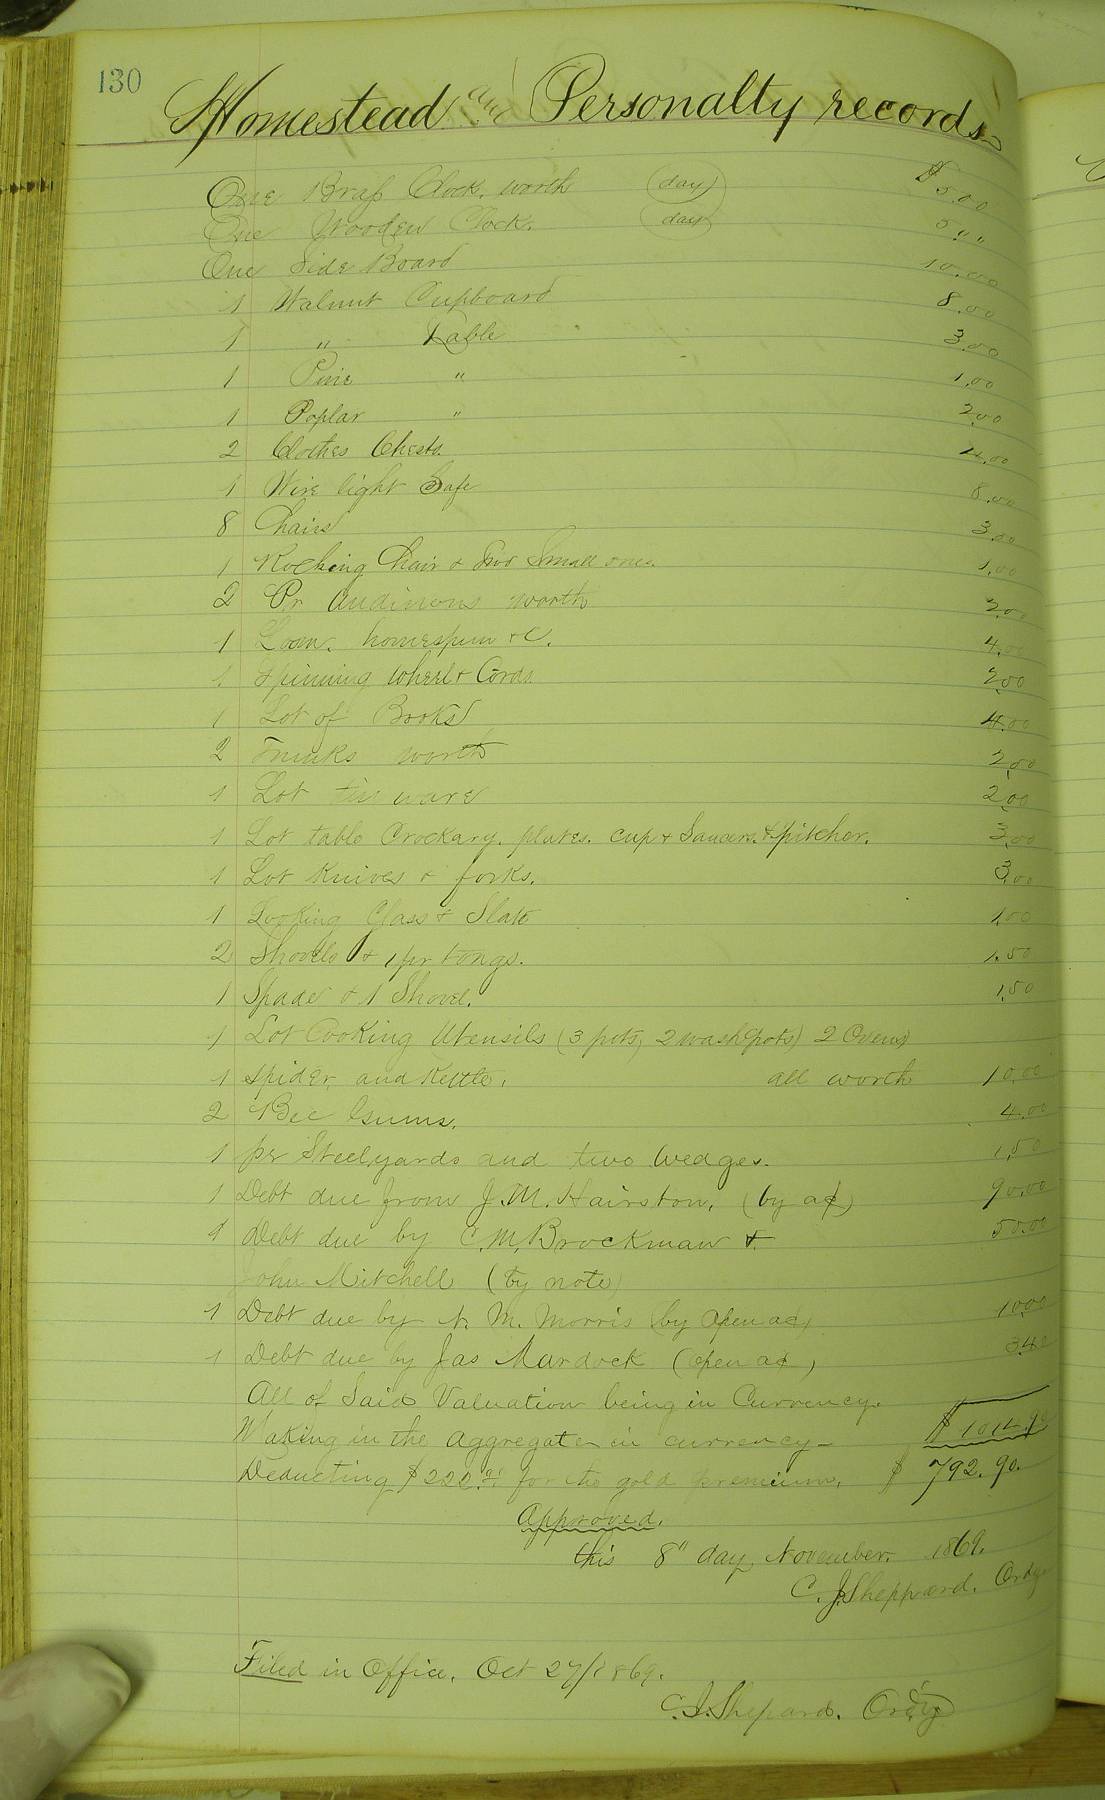 130
Homestead and Personalty records
One Brass Clock, worth (day) $5.00
One Wooden Clock. (day) 5 " "
One Side Board 10.00
1 Walnut Cupboard 8.00
1 " Table 3.00
1 Pine " 1.00
1 Poplar " 2.00
2 Clothes Chests. 4.00
1 Wire light Safe 8.00
8 Chairs 3.00
1 Rocking Chair & Two Small ones. 1.00
2 Pr Andirons worth 2.00
1 Loom. homespun &C. 4.00
1 Spinning Wheel & Cords 2.00
1 Lot of Books 4.00
2 Trunks worth 2.00
1 Lot tin ware 2.00
1 Lot table Crockary. plates. cup & Saucers. & pitcher. 3.00
1 Lot Knives & forks. 3.00
1 Looking Glass & Slate 1.00
2 Shovels & 1 pr tongs. 1.50
1 Spade & 1 Shovel. 1.50
1 Lot Cooking Utensils (3 pots, 2 wash pots) 2 Ovens
1 Spider and Kettle, all worth 10.00
2 Bee Gums. 4.00
1 pr Steelyards and two Wedges. 1.50
1 Debt due from J. M. Hairston, (by act) 90.00
1 Debt due by C. M. Brockman & 50.00
John Mitchell (by note)
1 Debt due by N. M. Morris (by open act) 10.00
1 Debt due by Jas Murdock (open act) 3.40
All of Said Valuation being in Currency.
Making in the aggregate in currency -
Deducting for the gold premium, $ 792.90.
Approved.
this 8" day November. 1869.
C. J. Sheppard. Ordy
Filed in Office. Oct 27/1869.
C. J. Shepard. Ord'y